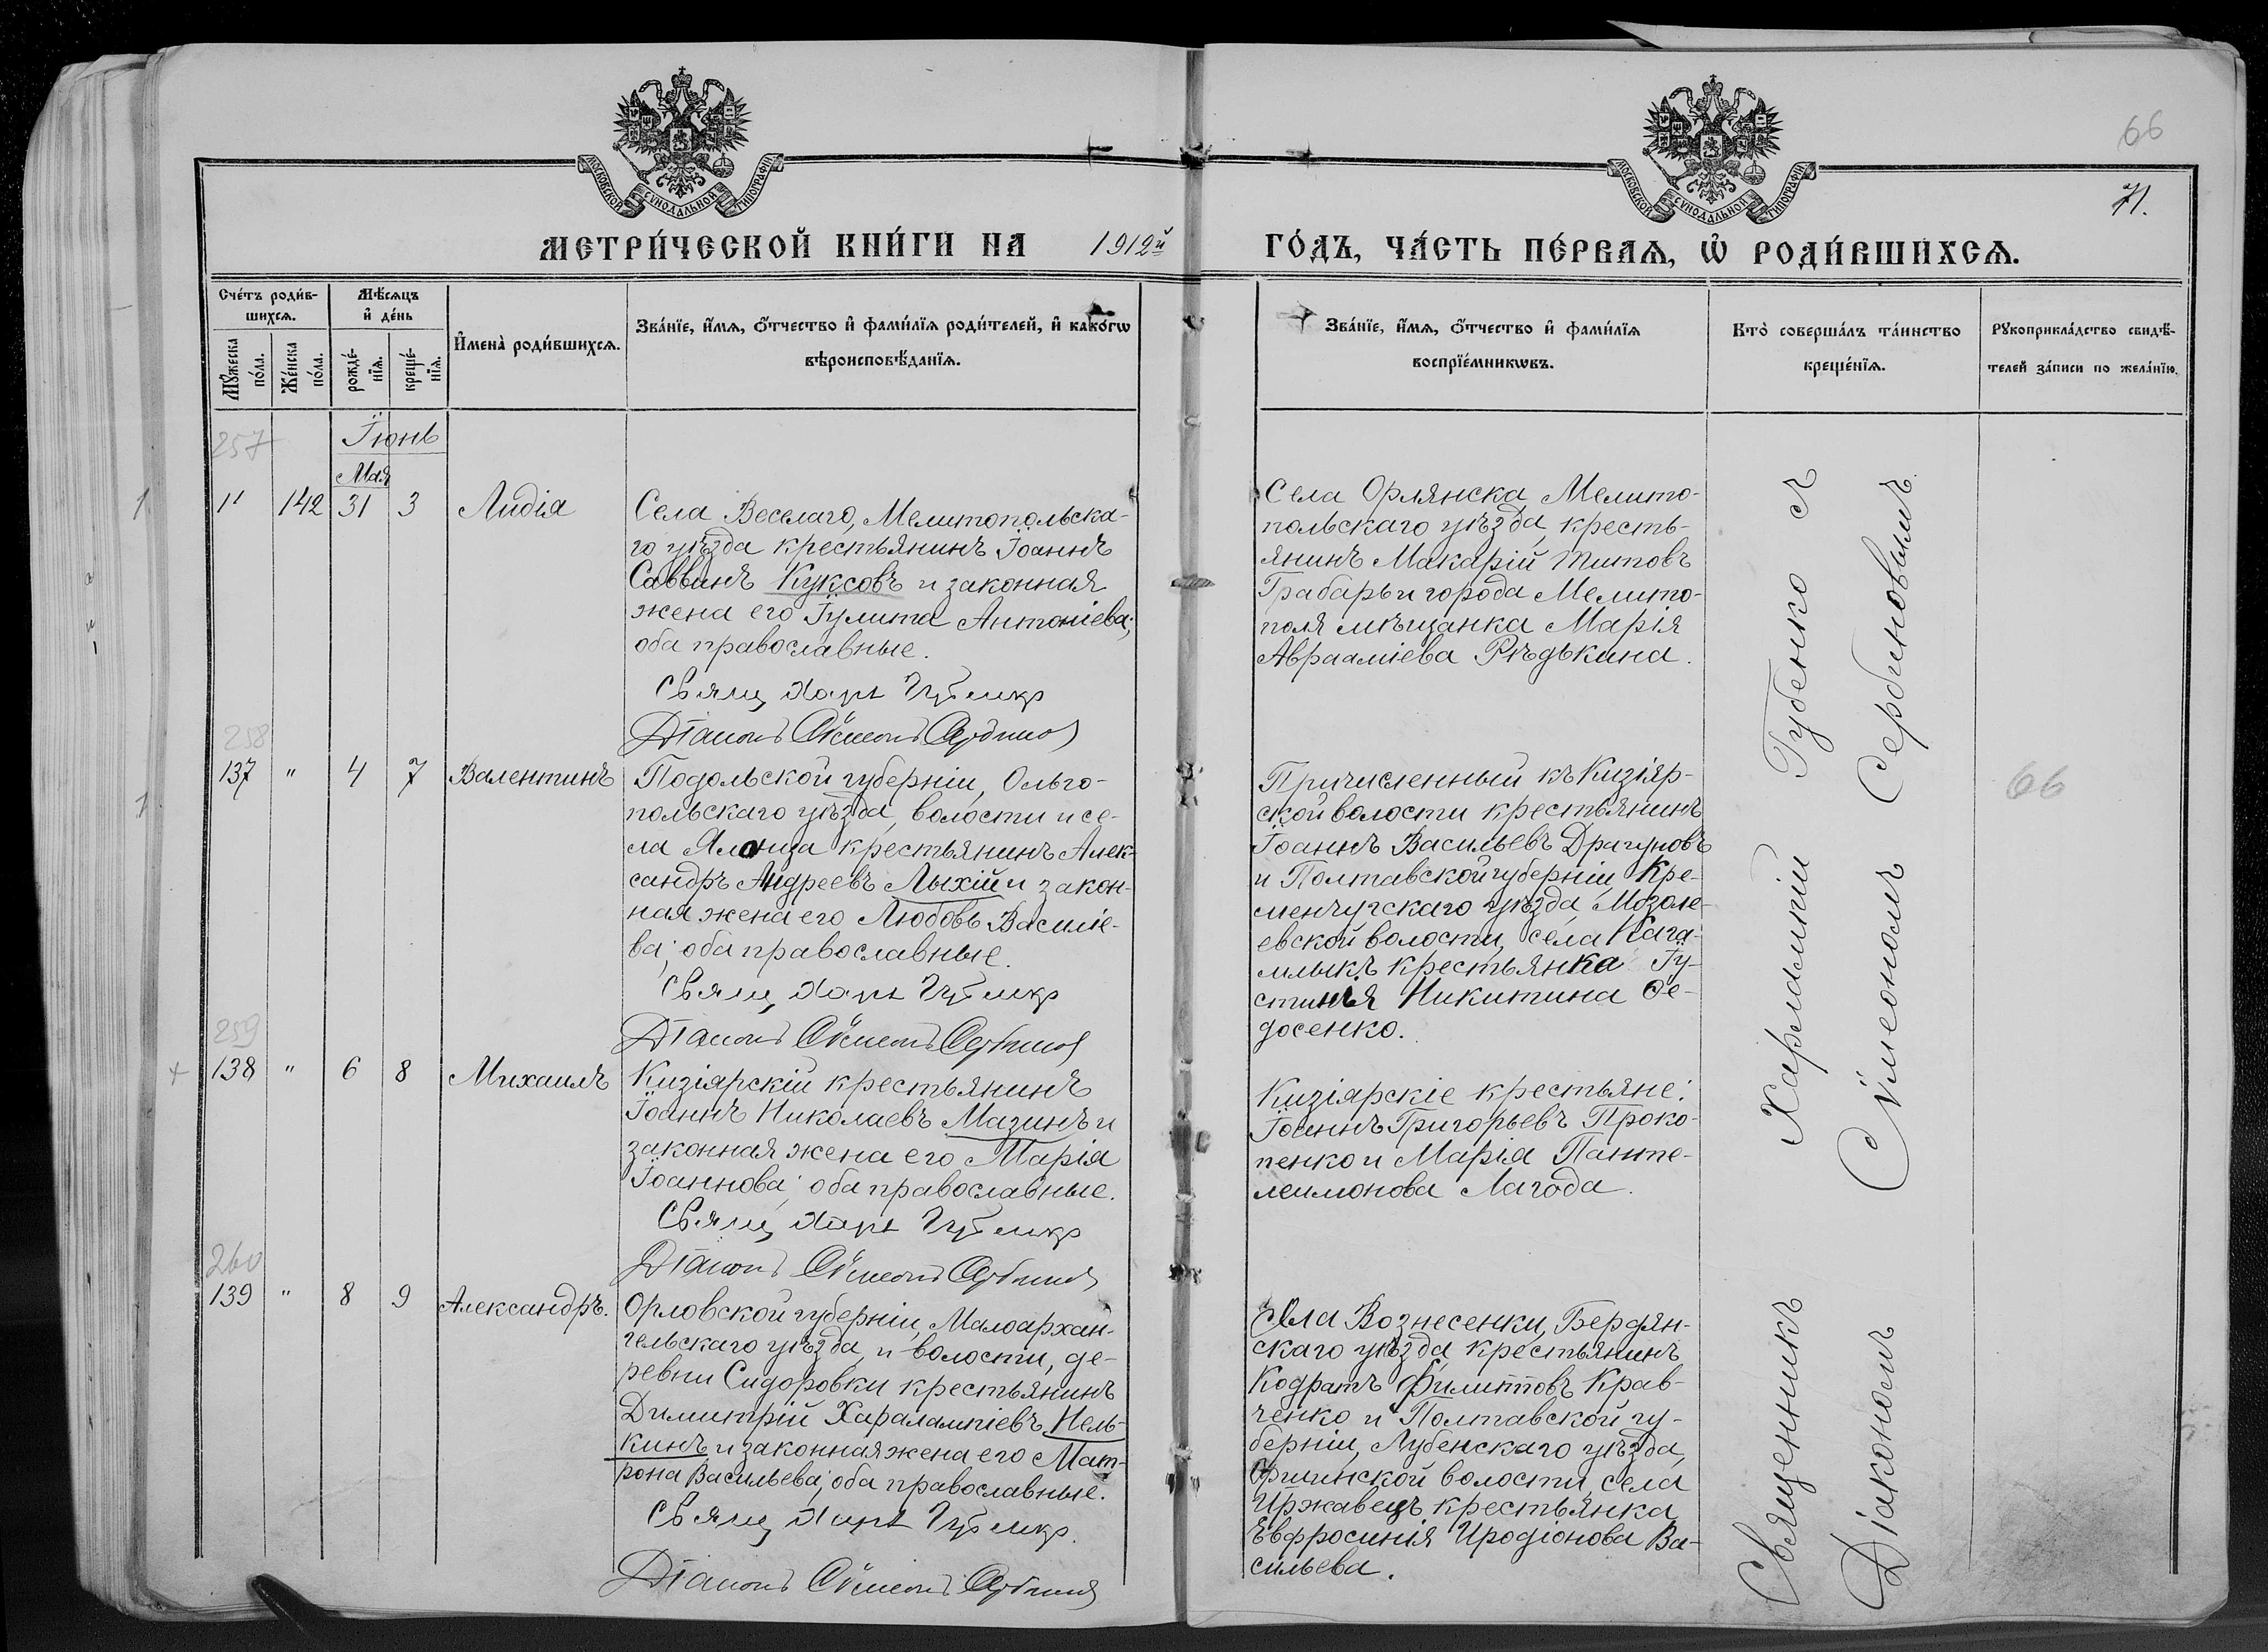 66
71.
МОСКОВСКОЙ СѴНОДАЛЬНОЙ ТИПОГРАФІИ
МОСКОВСКОЙ СѴНОДАЛЬНОЙ ТИПОГРАФІИ
МЕТРИ́ЧЕСКОЙ КНИ́ГИ НА 1912й ГО́ДЪ, ЧА́СТЬ ПЕ́РВАѦ, Ѡ҆ РОДИ́ВШИХСѦ.
Сче́тъ роди́в-
шихсѧ.
Мꙋ́жеска
по́ла.
Же́нска
по́ла.
Мѣ́сѧцъ
и҆ де́нь
рожде́-
нїѧ.
креще́-
нїѧ.
И҆мена̀ роди́вшихсѧ.
Зва́нїе, и҆́мѧ, ѻ҆́тчество и҆ фамн́лїѧ роди́телей, и҆ како́гѡ
вѣроисповѣ́данїѧ.
Зва́нїе, и҆́мѧ, ѻ҆́тчество и҆ фами́лїѧ
воспрїе́мникѡвъ.
Кто̀ соверша́лъ та́инство
креще́нїѧ.
Рꙋкоприкла́дство свидѣ́-
телей за́писи по жела́нїю.
257
Іюнь
Мая
1
1" 142 31 3 Лидія
Села Веселаго, Мелитопольска-
го уѣзда крестьянинъ Іоаннъ
Саввинъ Куксовъ и законная
жена его Іулита Антоніева;
оба православные.
Свящ Харл Губенко
Діаконъ Сѵмеонъ Сербинов
Села Орлянска, Мелито-
польскаго уѣзда, кресть-
янинъ Макарій Титовъ
Грабарь и города Мелито-
поля мѣщанка Марія
Авраамiева Рѣдькина.
258
1
137 " 4 7 Валентинъ
Подольской губерніи, Ольго-
польскаго уѣзда, волости и се-
ла Яланца крестьянинъ Алек-
сандръ Андреевъ Лыхій и закон-
ная жена его Любовь Василіе-
ва; оба православные.
Свящ Харл Губенко
Діаконъ Сѵмеонъ Сербинов
Причисленный къ Кизіяр-
ской волости крестьянинъ
Іоаннъ Васильевъ Драгуновъ
и Полтавской губерніи, Кре-
менчугскаго уѣзда, Мозоле-
евской волости, села Кага-
млыкъ крестьянка Іу-
стинія Никитина Ѳе-
досенко.
66
259
+
138 " 6 8 Михаилъ
Кизіярскій крестьянинъ
Іоаннъ Николаевъ Мазинъ и
законная жена его Марія
Іоаннова; оба православные.
Свящ Харл Губенко
Діаконъ Сѵмеонъ Сербинов
Кизіярскіе крестьяне:
Іоаннъ Григорьевъ Проко-
пенко и Марія Панте-
леимонова Лагода.
260
139 " 8 9 Александръ.
Орловской губерніи, Малоархан-
гельскаго уѣзда, и волости, де-
ревни Сидоровки крестьянинъ
Димитрій Харалампіевъ Нель-
кинъ и законная жена его Мат-
рона Васильева; оба православные.
Свящ Харл Губенко.
Діаконъ Сѵмеонъ Сербинов
Села Вознесенки, Бердян-
скаго уѣзда, крестьянинъ
Кодратъ Филипповъ Крав-
ченко и Полтавской гу-
берніи, Лубенскаго уѣзда,
волости, села
Иржавецъ крестьянка
Евфросинія Иродіонова Ва-
сильева.
Священникъ Харлампій Губенко съ
Діакономъ Сѵмеономъ Сербиновымъ